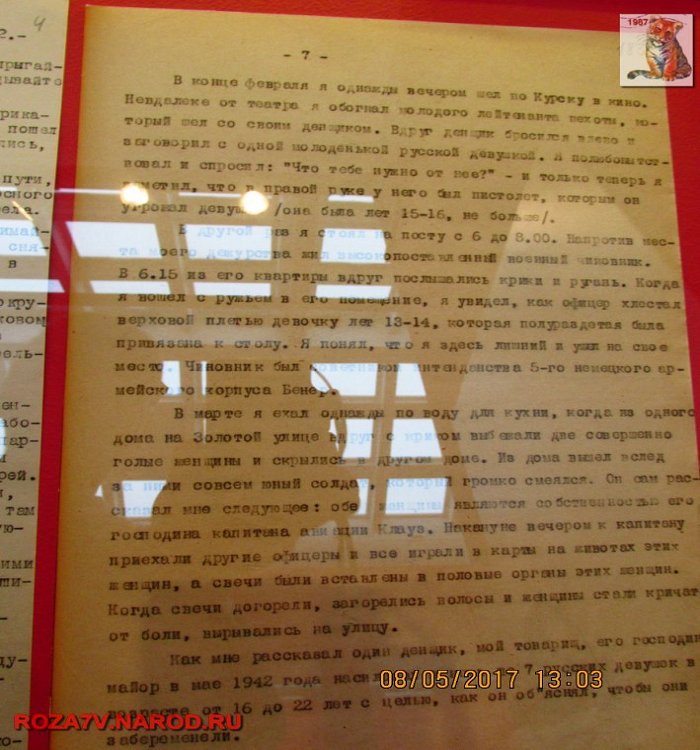 4
2.-
прыгай-
дывайте
рика-
пошел
лись,
пути,
осного
ела.
имай-
сня-
в
кру-
ковом
ель-
ен-
або-
дар-
ый
рей.
и,
там
ую-
ими
ши-
ду-
ко-
1987
- 7 -
В конце февраля я однажды вечером шел по Курску в кино.
Невдалеке от театра я обогнал молодого лейтенанта пехоты, ко-
торый шел со своим денщиком. Вдруг денщик бросился влево и
заговорил с одной молоденькой русской девушкой. Я полюбопытст-
вовал и спросил: "Что тебе нужно от нее?" - и только теперь я
заметил, что в правой руке у него был пистолет, которым он
угрожал девушке /она была лет 15-16, не больше/.
В другой раз я стоял на посту с 6 до 8.00. Напротив мес-
та моего дежурства жил высокопоставленный военный чиновник.
В 6.15 из его квартиры вдруг послышались крики и ругань. Когда
я вошел с ружьем в его помещение, я увидел, как офицер хлестал
верховой плетью девочку лет 13-14, которая полураздетая была
привязана к столу. Я понял, что я здесь лишний и ушел на свое
место. Чиновник был советником интенданства 5-го немецкого ар-
мейского корпуса Бенер.
В марте я ехал однажды по воду для кухни, когда из одного
дома на Золотой улице вдруг с криком выбежали две совершенно
голые женщины и скрылись в другом доме. Из дома вышел вслед
за ними совсем юный солдат, который громко смеялся. Он сам рас-
сказал мне следующее: обе женщины являются собственностью его
господина капитана авиации Клауз. Накануне вечером к капитану
приехали другие офицеры и все играли в карты на животах этих
женщин, а свечи были вставлены в половые органы этих женщин.
Когда свечи догорели, загорелись волосы и женщины стали кричать
от боли, вырвались на улицу.
Как мне рассказал один денщик, мой товарищ, его господин
майор в мае 1942 года 7 русских девушек в
возрасте от 16 до 22 лет с целью, как он об'яснял, чтобы они
забеременели.
08/05/2017 13:03
ROZA7V.NAROD.RU